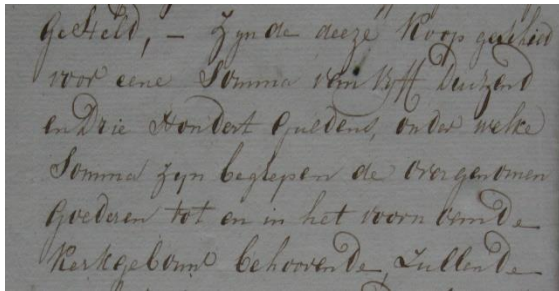 gesteld, – Zynde deeze Koop geschied
voor eene Somma van Vyff Duizend
en Drie Hondert Guldens, onder welke
Somma zyn begrepen de overgenomen
Goederen tot en in het voorn oemde
Kerkgebouw behoorende, Zullende